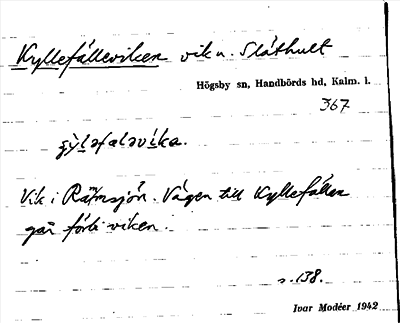 Kyllefälleviken vik u. Slåthult
Högsby sn, Handbörds hd, Kalm. l.
367
Vik i Rammsjön. Vägen till Kyllefällen
går förbi viken.
s. 138.
Ivar Modéer 1942